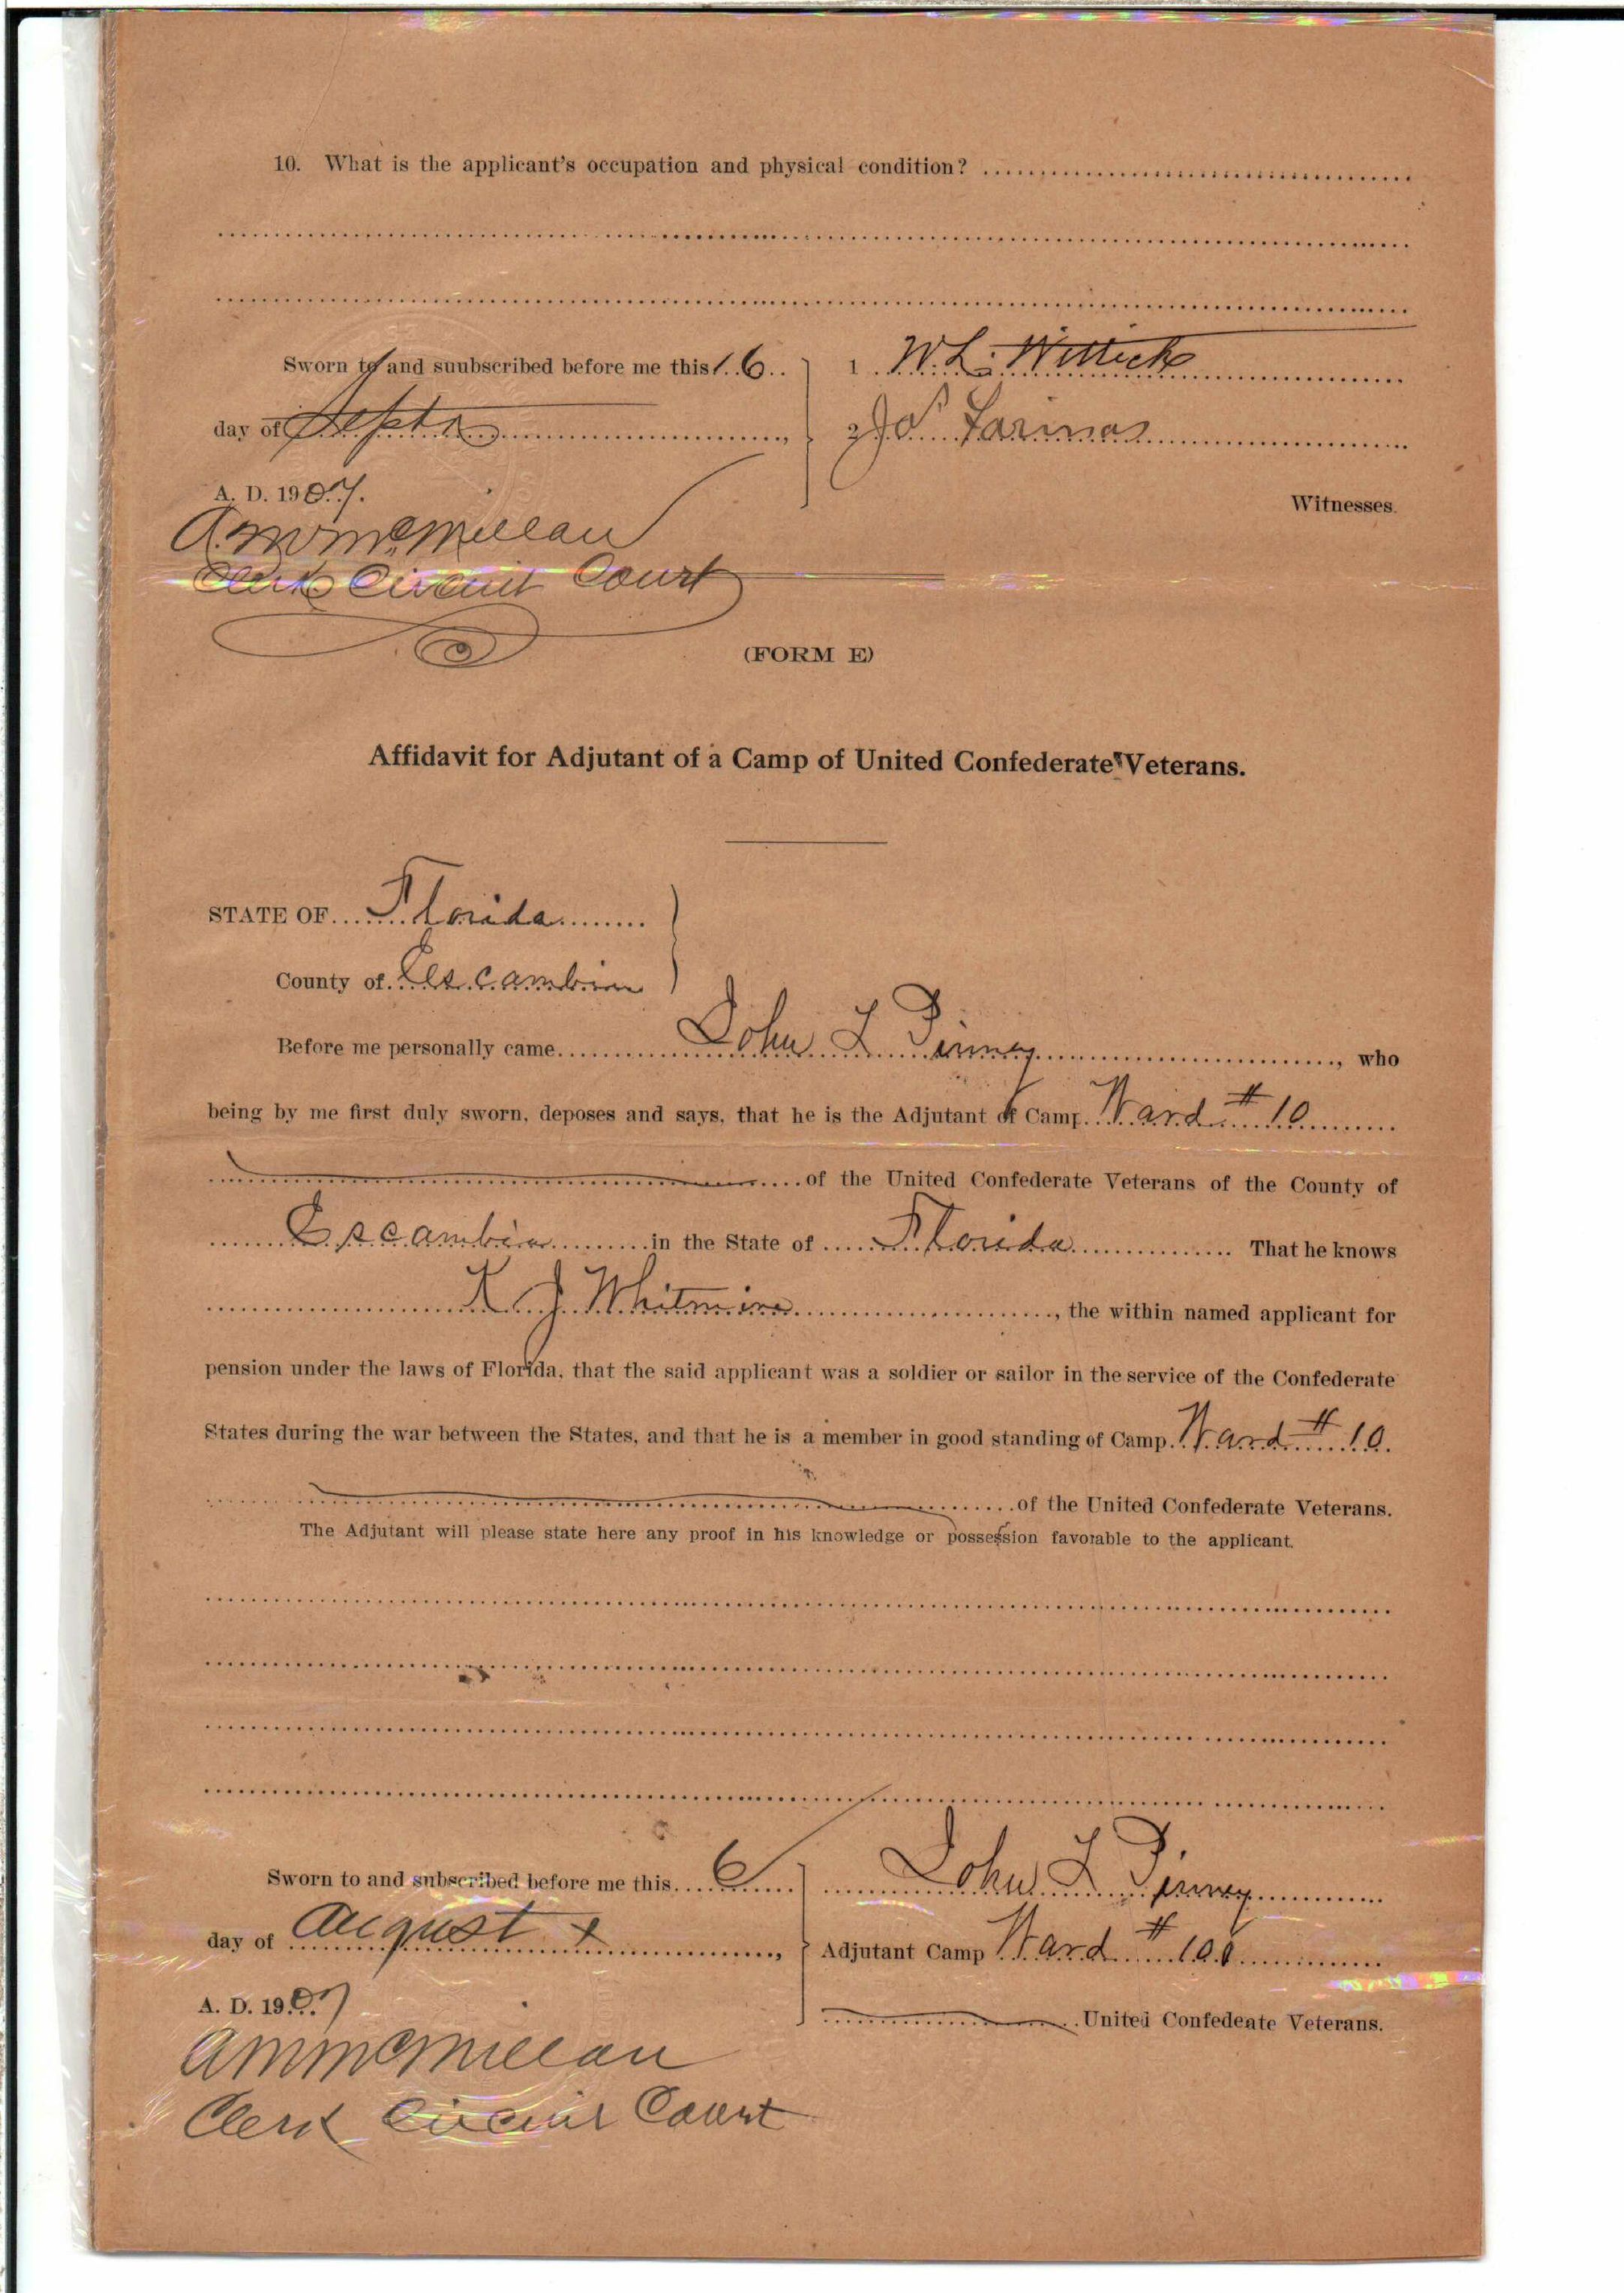 10. What is the applicant's occupation and physical condition?
Sworn to and suubscribed before me this 16
day of Sept
A. D. 1907.
1 W. L. Wittich
2 Jos Farinas
Witnesses.
A M McMillan
Clerk Circuit Court
(FORM E)
Affidavit for Adjutant of a Camp of United Confederate Veterans.
STATE OF Florida
County of Escambia
Before me personally came John L, who
being by me first duly sworn, deposes and says, that he is the Adjutant of Camp Ward # 10
of the United Confederate Veterans of the County of
Escambia in the State of Florida That he knows
K J Whitmire, the within named applicant for
pension under the laws of Florida, that the said applicant was a soldier or sailor in the service of the Confederate
States during the war between the States, and that he is a member in good standing of Camp Ward # 10.
of the United Confederate Veterans.
The Adjutant will please state here any proof in his knowledge or possession favorable to the applicant.
Sworn to and subscribed before me this 6
day of August
A. D. 1907
John L
Adjutant Camp Ward #
United Confedeate Veterans.
A M McMillan
Clerk Circuit Court